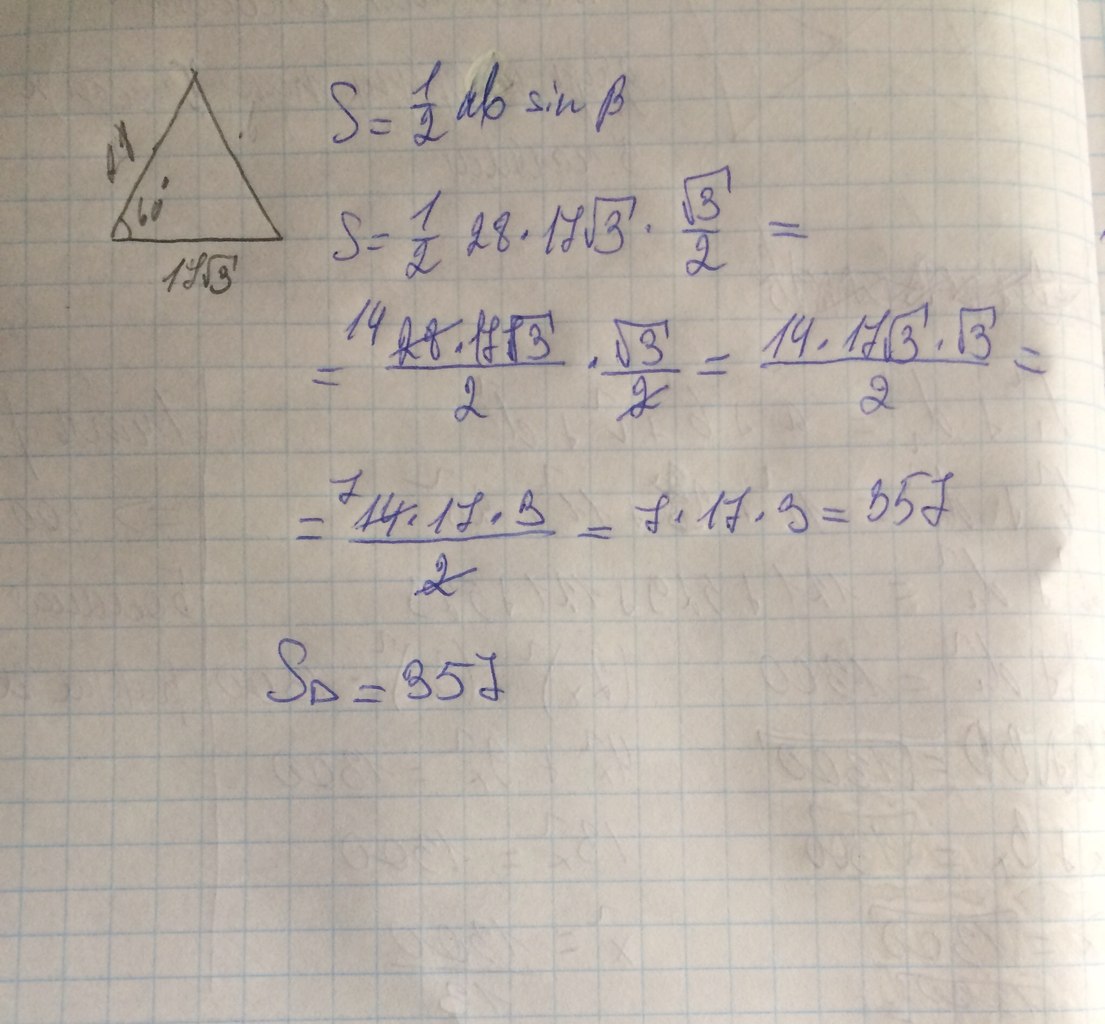 S = 1/2 ab sin β
60°
17√3
S = 1/2 28 · 17√3 · √3/2 =
= 14 28 · 17√3/2 · √3/2 = 14 · 17√3 · √3/2 =
= 7 14 · 17 · 3/2 = 7 · 17 · 3 = 357
S△ = 357